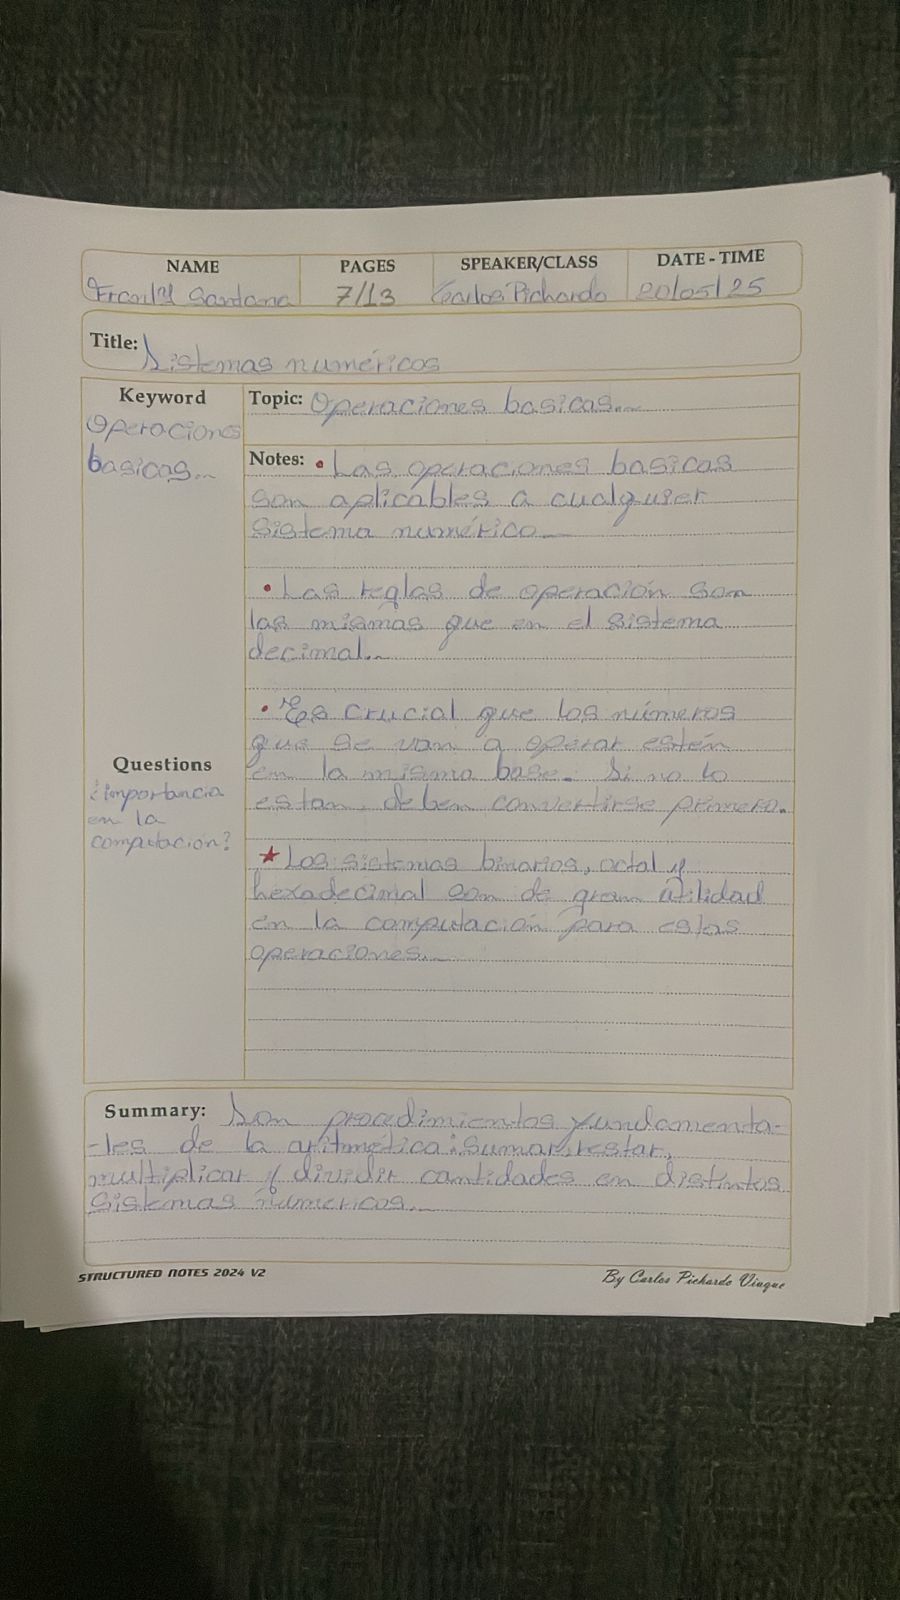 NAME
PAGES
SPEAKER/CLASS
DATE - TIME
Santana
7/13
Carlos Pichardo
20/05/25
Title: Sistemas numéricos
Keyword
Operaciones
basicas...
Topic: Operaciones basicas...
Notes: • Las operaciones basicas
son aplicables a cualquier
sistema numérico...
• Las reglas de operación son
las mismas que en el sistema
decimal...
• Es crucial que los números
que se van a operar estén
en la misma base. Si no lo
estan, deben convertirse primero.
★ Los sistemas binarios, octal y
hexadecimal son de gran utilidad
en la computación para estas
operaciones...
Questions
¿Importancia
en la
computación?
Summary: Son procedimientos fundamenta-
-les de la aritmética: sumar, restar,
multiplicar y dividir cantidades en distintos
sistemas númericos...
STRUCTURED NOTES 2024 V2
By Carlos Pichardo Viuque